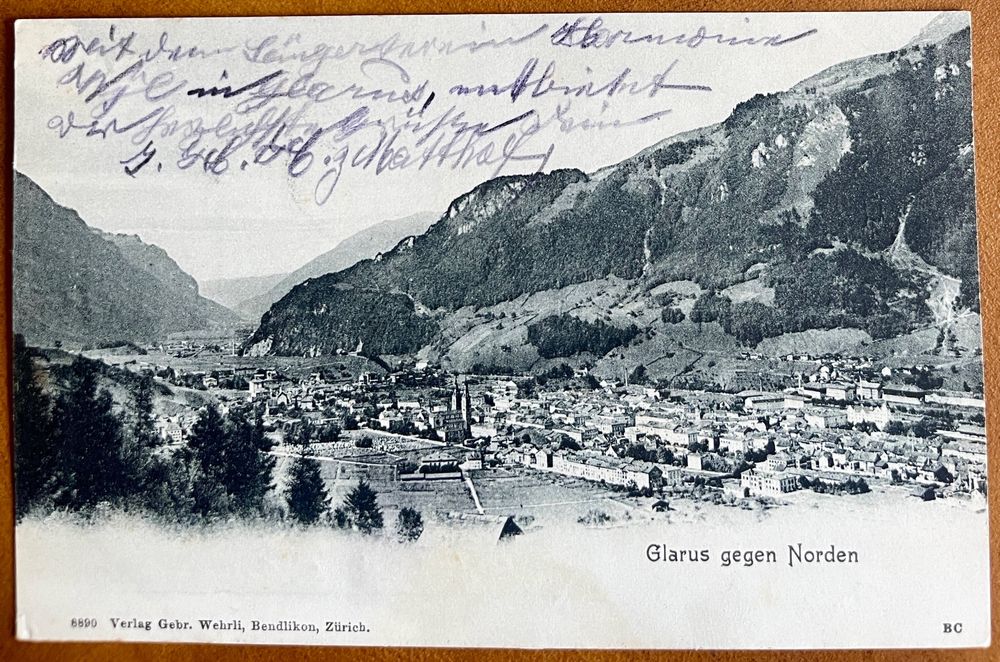 Mit dem Sängerverein Harmonie
in Glarus, entbietet
dir herzlichste Grüsse, Dein
z Matthof
Glarus gegen Norden
8890 Verlag Gebr. Wehrli, Bendlikon, Zürich.
BC